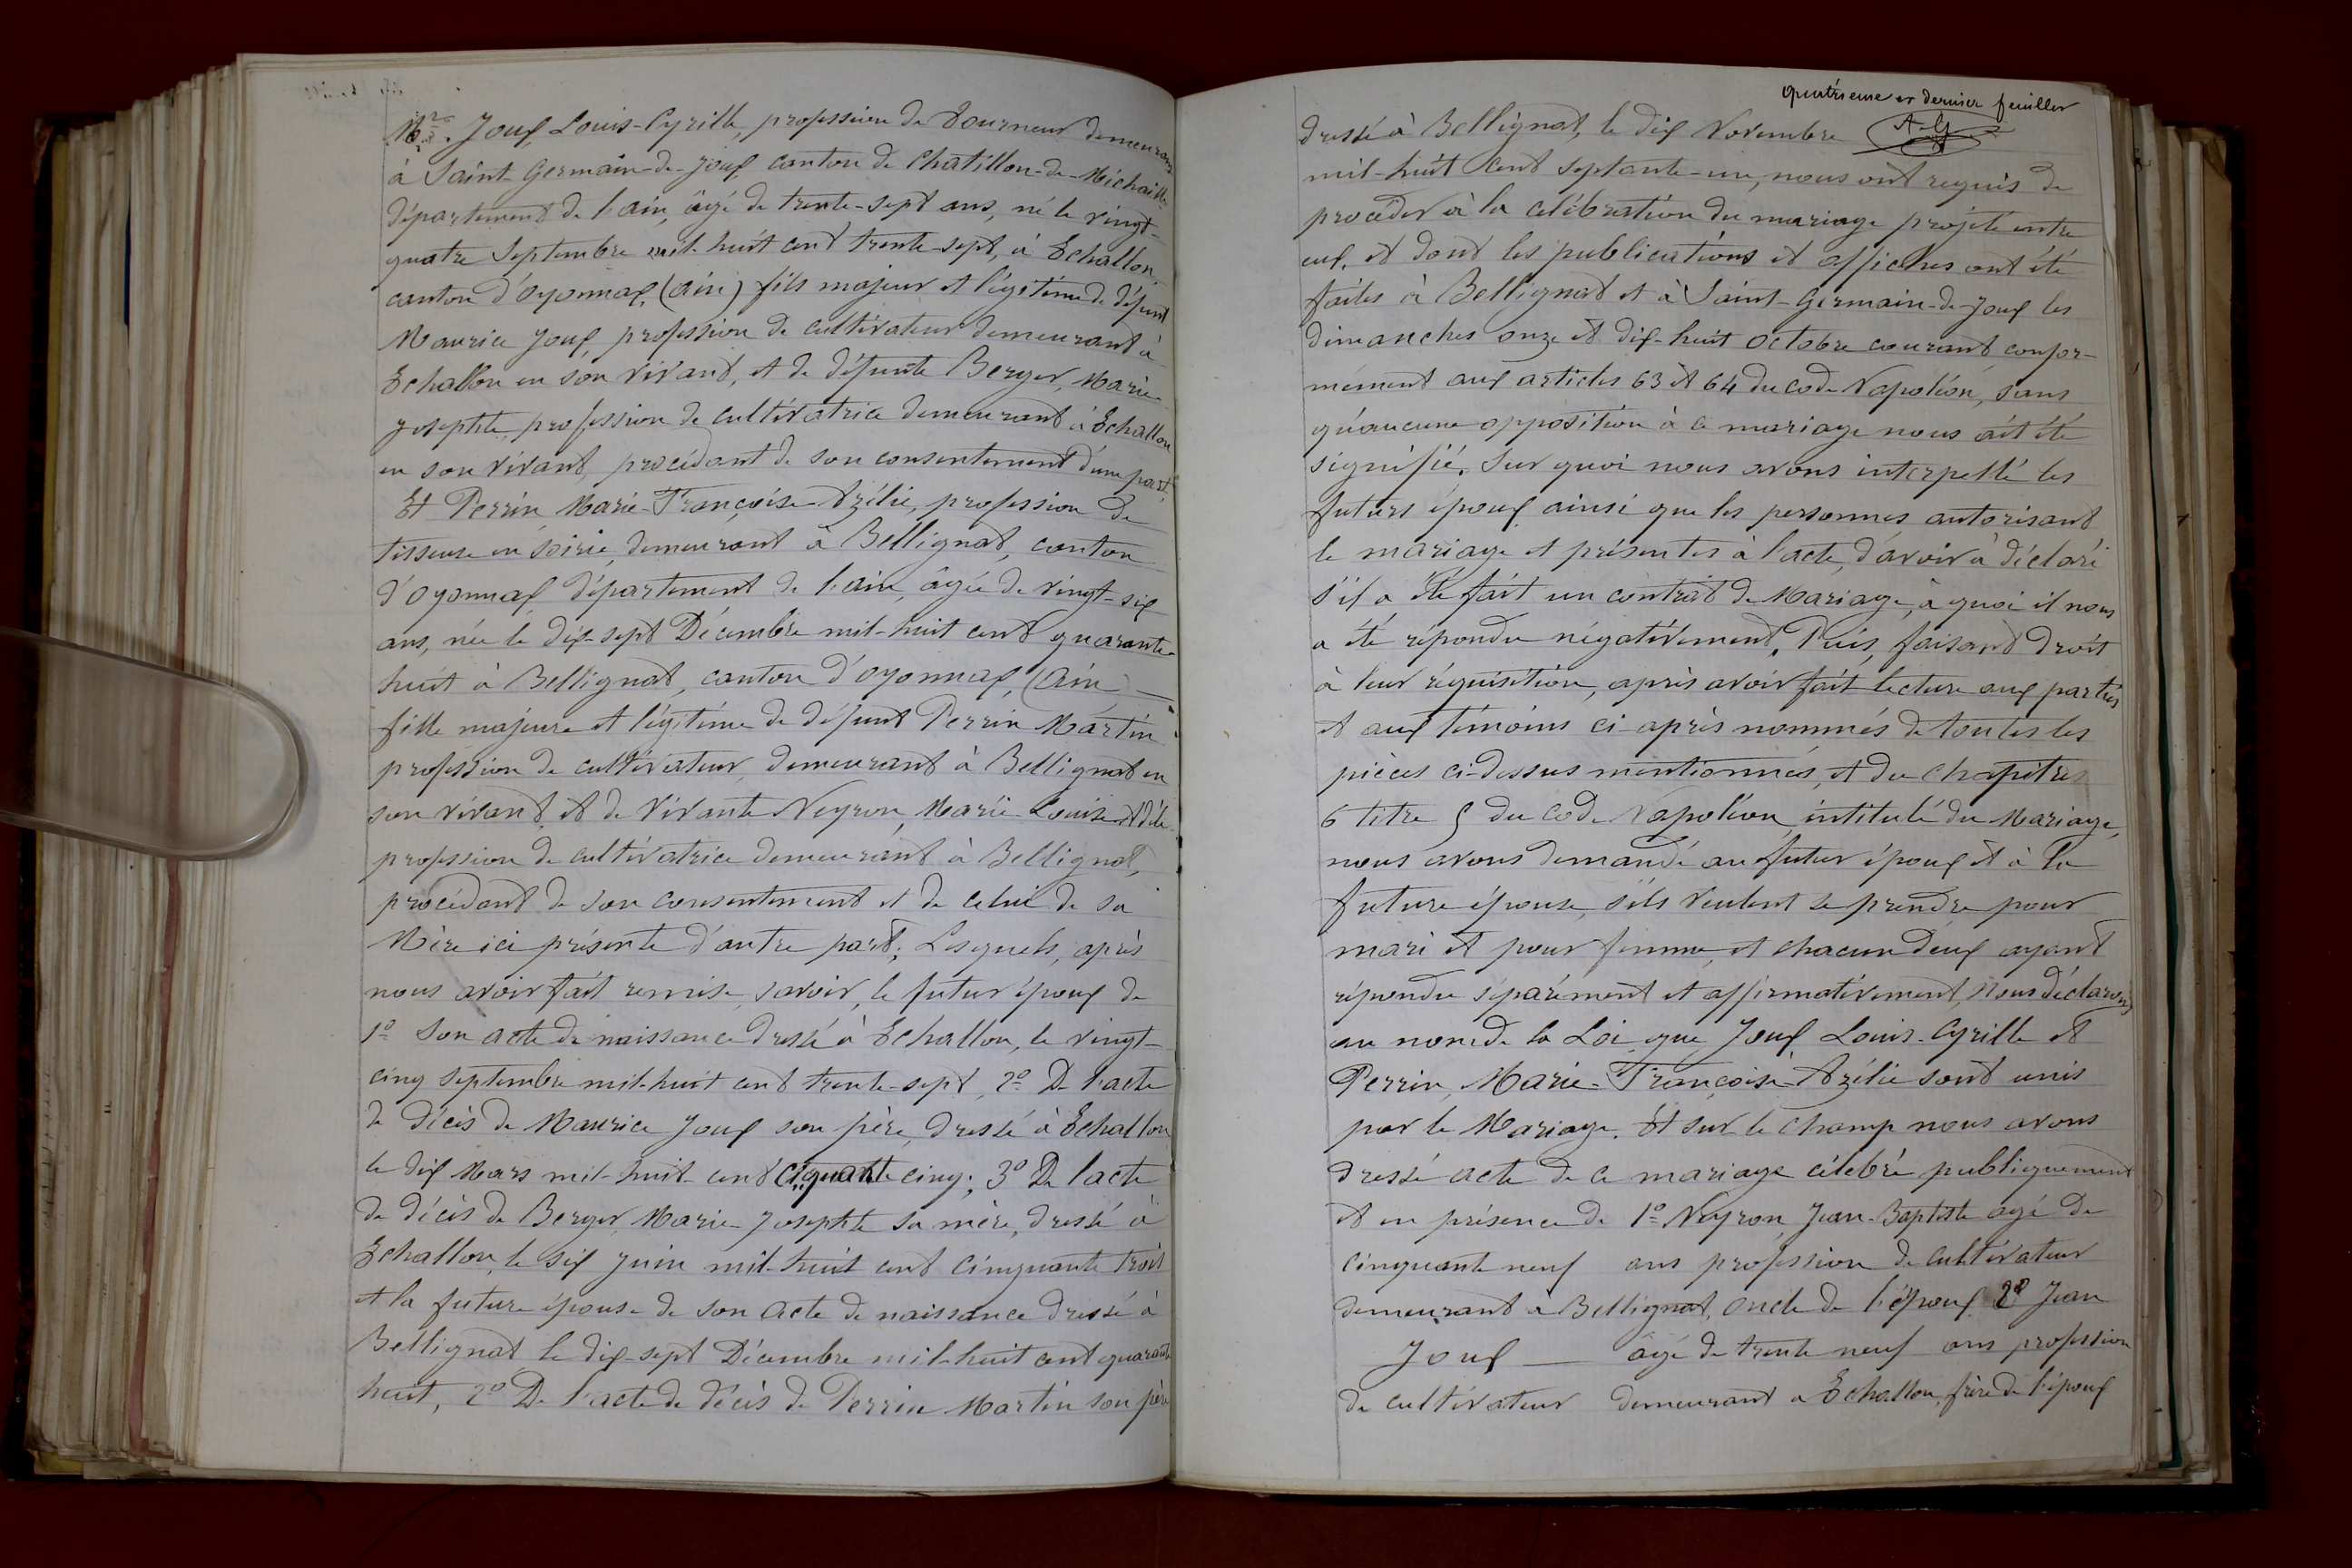 Mrs. Joux, Louis-Cyrille, profession de Tourneur demeurant
à Saint-Germain-de-Joux canton de Chatillon-de-Michaille
département de l'ain, âgé de trente-sept ans, né le vingt-
quatre Septembre mil-huit cent trente-sept, à Echallon
canton d'Oyonnax, (ain) fils majeur et légitime de défunt
Maurice Joux, profession de cultivateur demeurant à
Echallon en son vivant, et de défunte Berger, Marie-
Josephte, profession de cultivatrice demeurant à Echallon
en son vivant, procédant de son consentement d'une part,
Et Perrin, Marie-Françoise-Azélie, profession de
tisseuse en soirie, demeurant à Bellignat, canton
d'Oyonnax, département de l'ain, âgée de vingt-six
ans, née le dix-sept Décembre mil-huit cent quarante-
huit à Bellignat, canton d'Oyonnax, (ain) —
fille majeure et légitime de défunt Perrin Martin
profession de cultivateur, demeurant à Bellignat en
son vivant, et de vivante Neyron, Marie-Louise-Adèle
profession de cultivatrice demeurant à Bellignat,
procédant de son consentement et de celui de sa
Mère ici présente d'autre part; Lesquels, après
nous avoir fait remise, savoir, le futur époux de
1º Son acte de naissance dressé à Echallon, le vingt-
cinq septembre mil-huit cent trente-sept, 2º De l'acte
de décès de Maurice Joux son père, dressé à Echallon
le dix Mars mil-huit-cent ciquante cinq; 3º De l'acte
de décès de Berger Marie-Josephte sa mère, dressé à
Echallon, le six Juin mil-huit cent cinquante trois
et la future épouse de son acte de naissance dressé à
Bellignat le dix-sept Décembre mil-huit cent quarante
huit, 2º De l'acte de décès de Perrin Martin son père
quatrieme et dernier feuillet
A G
dressé à Bellignat, le dix Novembre
mil-huit cent septante-une, nous ont requis de
procéder à la célébration du mariage projeté entre
eux, et dont les publications et affiches ont été
faites à Bellignat et à Saint-Germain-de-Joux les
dimanches onze et dix-huit Octobre courant, confor-
mément aux articles 63 et 64 du code Napoléon, sans
qu'aucune opposition à ce mariage nous ait été
signifié. Sur quoi nous avons interpellé les
futurs époux ainsi que les personnes autorisant
le mariage et présentes à l'acte, d'avoir à déclaré
s'il a été fait un contrat de Mariage, à quoi il nous
a été répondu négativement. Puis, faisant droit
à leur réquisition, après avoir fait lecture aux parties
et aux témoins ci-après nommés de toutes les
pièces ci-dessus mentionnés, et du chapitre
6 titre 5 du code Napoléon intitulé du Mariage,
nous avons demandé au futur époux et à la
future épouse, s'ils veulent se prendre pour
mari et pour femme, et chacun deux ayant
répondu séparément et affirmativement, Nous déclarons
au nom de la Loi que Joux Louis-Cyrille et
Perrin, Marie-Françoise-Azélie sont unis
par le Mariage. Et sur le champ nous avons
dressé acte de ce mariage célébré publiquement
et en présence de 1º Neyron, Jean-Baptiste agé de
cinquante neuf ans profession de cultivateur
demeurant à Bellignat, Oncle de l'époux 2º Jean
Joux — âgé de trente neuf ans profession
de cultivateur demeurant a Echallon, frère de l'époux